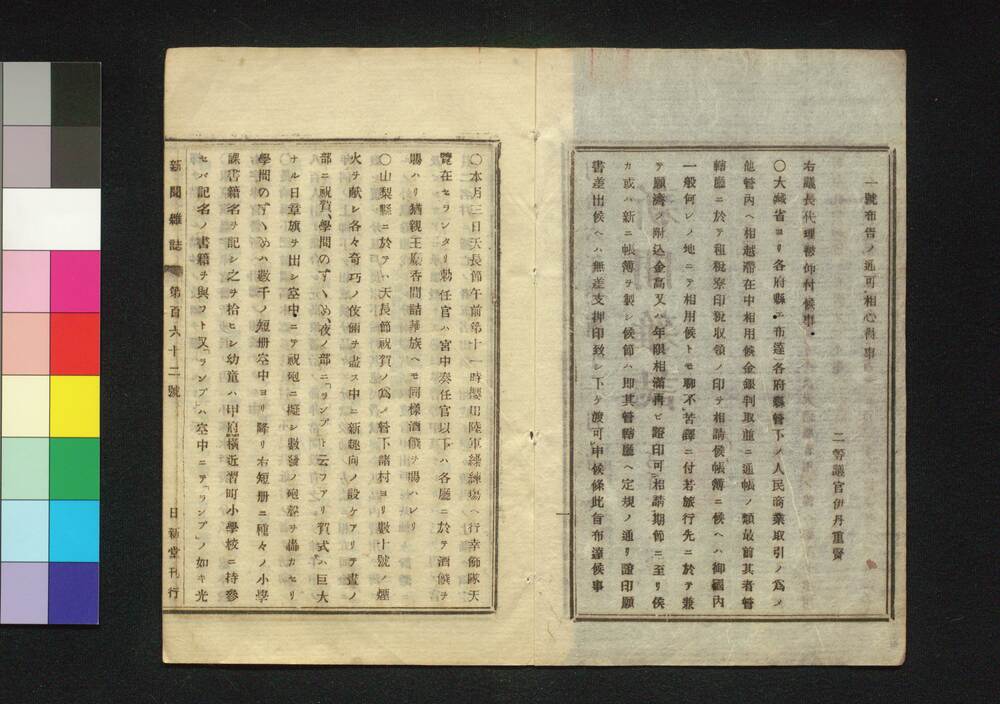 一號布告ノ通可相心得事
二等議官伊丹重賢
右議長代理被仰付候事
〇大藏省ヨリ各府縣エ布達)各府縣管下ノ人民商業取引ノ爲メ
他管內ヘ相越滯在中相用候金銀判取並ニ通帳ノ類最前其者管
轄廳ニ於テ租稅寮印稅取領ノ印ヲ相請候帳簿ニ候ヘハ御國內
一般何レノ地ニテ相用候トモ聊不苦譯ニ付若旅行先ニ於テ兼
テ願濟ノ附込金高又ハ年限相滿再ヒ證印可相請期節ニ至リ候
カ或ハ新ニ帳簿ヲ製シ候節ハ卽其管轄廳ヘ定規ノ通リ證印願
書差出候ヘハ無差支押印致シ下ケ渡可申候條此旨布達候事
〇本月三日天長節午前第十一時操練場ヘ行幸飾隊天
覽在セラレタリ勅任官ハ宮中奏任官以下ハ各廳ニ於テ酒饌ヲ
賜ハリ猶親王麝香間詰華族ヘモ同樣酒饌ヲ賜ハレリ
〇山梨縣ニ於テハ天長節祝賀ノ爲メ管下諸村ヨリ數十號ノ煙
火ヲ獻シ各々奇巧ノ伎倆ヲ盡ス中ニ新趣向ノ設ケアリテ晝ノ
部ニ祝賀、學問のすゝめ、夜ノ部ニ「ランプ」ト云フアリ賀式ハ巨大
ナル日章旗ヲ出シ空中ニテ祝砲ニ擬シ數發ノ砲聲ヲ轟カセリ
學問のすゝめハ數千ノ短册空中ヨリ降リ右短册ニ種々ノ小學
課書籍名ヲ記シ之ヲ拾ヒシ幼童ハ甲府橫近習町小學校ニ持參
セバ記名ノ書籍ヲ與フト又「ランプ」ハ空中ニテ「ランプ」ノ如キ光
新聞雜誌 第百六十二號 日新堂刊行